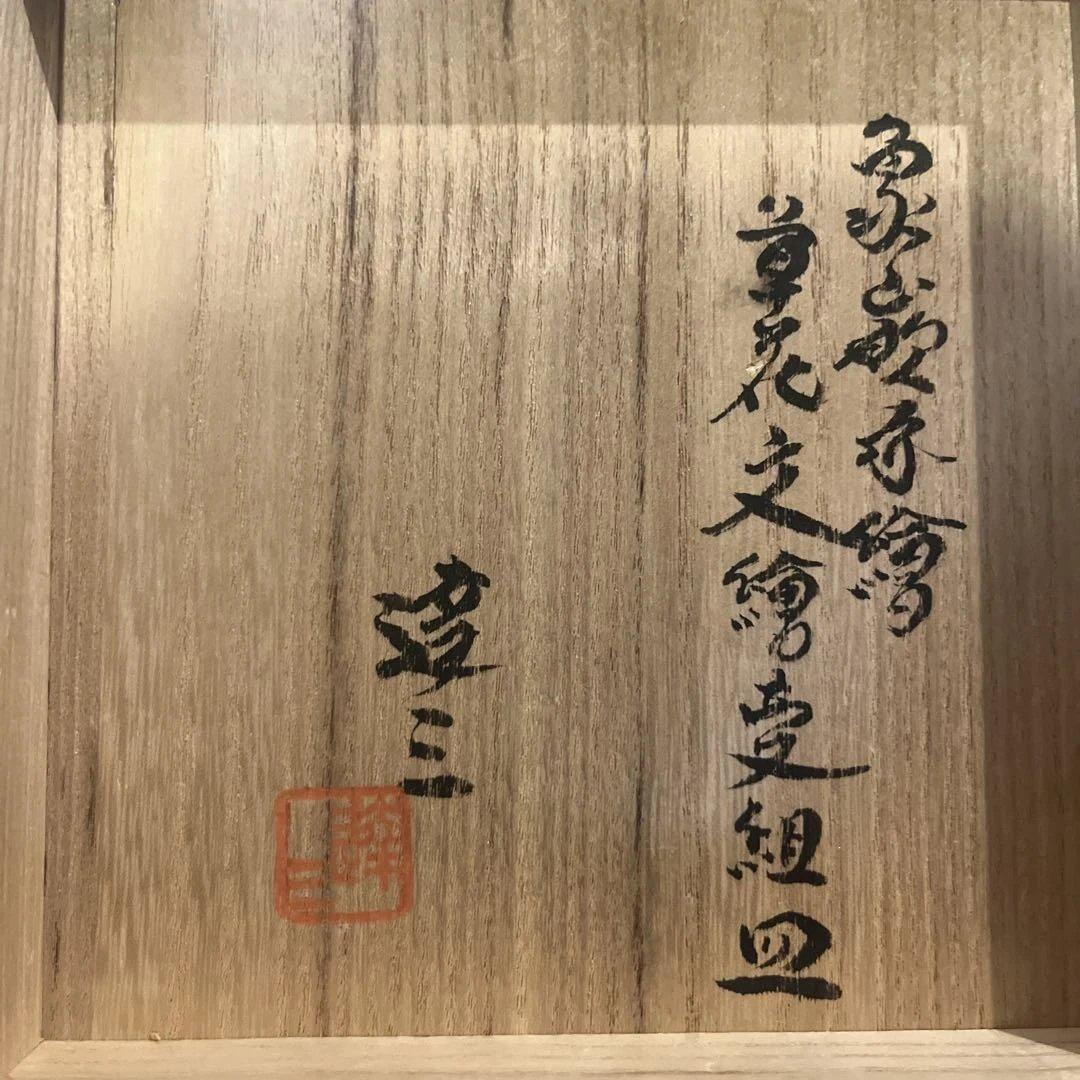 象嵌赤繪
草花之繪変組皿
達三